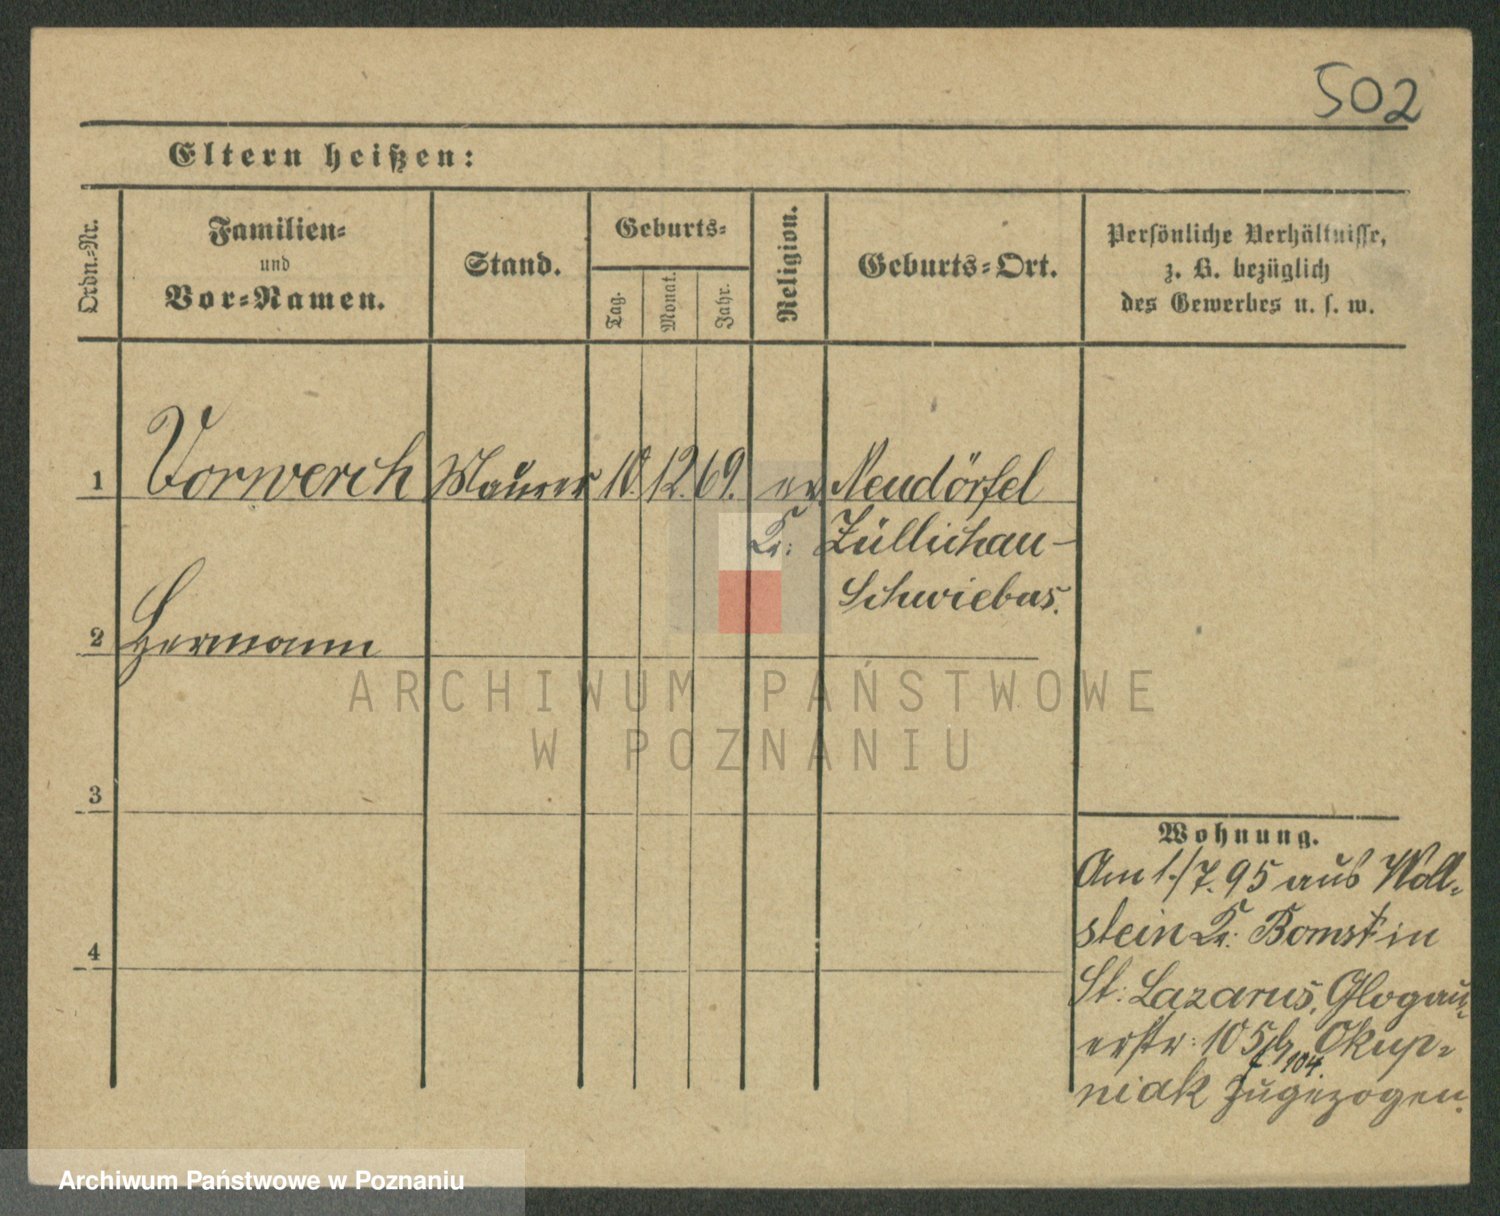 502
Eltern heißen:
Ordn.-Nr.
Familien-
und
Vor-Namen.
Stand.
Geburts-
Tag.
Monat.
Jahr.
Religion.
Geburts-Ort.
Persönliche Verhältnisse,
z. B. bezüglich
des Gewerbes u. s. w.
1 Vorwerch Maurer 10. 12. 69. ev. Neudörfel
Kr: Züllichau-
Schwiebus.
2 Hermann
ARCHIWUM PAŃSTWOWE
W POZNANIU
3
4
Wohnung.
Am 1./7. 95 aus Woll-
stein Kr. Bomst in
St: Lazarus, Glogau-
erstr: 105 b/ Okup-
104.
niak zugezogen.
Archiwum Państwowe w Poznaniu